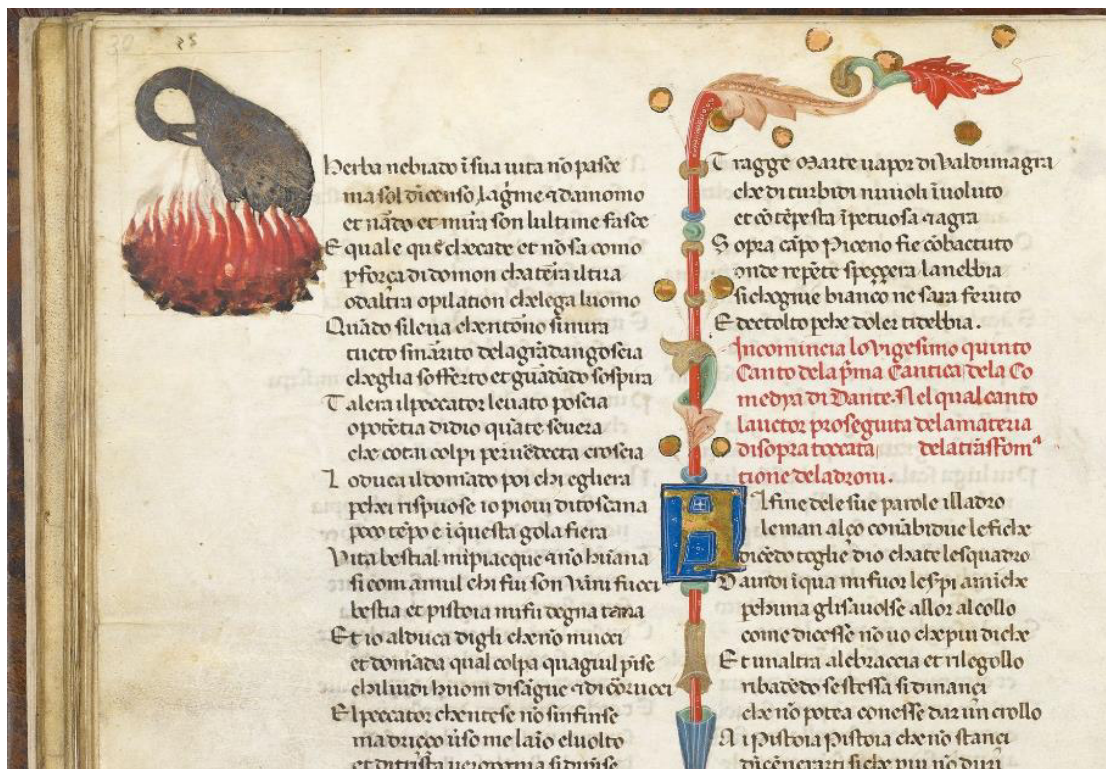 30 25
Herba ne biado ī sua uita nō pasce
ma sol dīcenso lagr̄me ⁊ damomo
et nādo et mirra son lultime fasce
E quale qū che cade et nō sa como
p̱ força di domon cha terra il tira
o daltra opilation che lega luomo
Quādo si leua chentorno si mira
tucto smārito dela grādangoscia
chegli a sofferto et guādādo sospira
Tal era il peccator leuato poscia
o potētia didio quāte seuera
che cotai colpi per uēdecta croscia
Lo duca il domādo poi chi egli era
perchei rispuose io pioui di toscana
poco tēpo e ī questa gola fiera
Vita bestial mi piacque ⁊ nō humana
si com a mul chi fui son vāni fucci
bestia et pistoia mi fu degna tana
Et io al duca digli che nō mucci
et domāda qual colpa qua giu l pīse
chi lo uidi huom di sāgue ⁊ di corrucci
El peccator chentese nō sinfinse
ma driçço uerso me laīo el uolto
et di trīsta uergogna si dipīse
Tragge Marte uapor di Valdimagra
che di turbidi nuuoli īuoluto
et cō tēpesta īpetuosa ⁊ agra
Sopra cāpo Piceno fie cōbactuto
onde repēte speççera la nebbia
si chogne bianco ne sara feruto
E decto lto p̱che doler ti debbia.
Incomincia lo vigesimo quinto
Canto dela p̄ma Cantica dela Co
medya di Dante. Nel qual canto
lauctor proseguita dela materia
disopra toccata dela trāsfomᵃ
tione de ladroni.
Al fine dele sue parole il ladro
le man alço con ābidue le fiche
dicēdo togli e dio cha te le squadro
Da indi ī qua mi fuor le s̱pi amiche
p̱ch una gli sauolse allor al collo
come dicesse nō uo che piu diche
Et unaltra a le braccia et rilegollo
ribadēdo se stessa si dinançi
che nō potea con esse dar un crollo
Ai Pistoia Pistoia che nō stançi
dīcenerarti si che piu nō duri